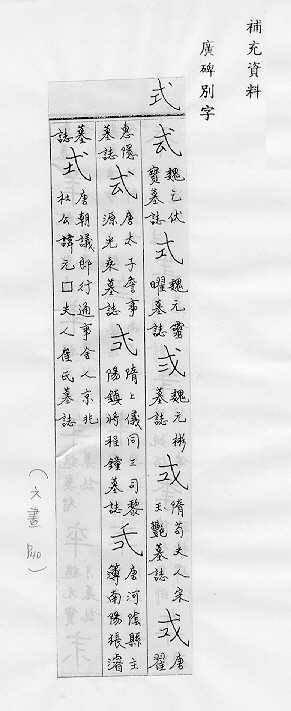 補充資料
廣碑別字
式
魏乞伏
寶墓誌
式
魏元靈
曜墓誌
魏元彬
墓誌
隋荀夫人宋
玉艷墓誌
唐
翟
惠隱
墓誌
唐太子詹事
源光乘墓誌
隋上儀同三司黎
陽鎮將程鐘墓誌
唐河陰縣主
簿南陽張濬
墓
誌
式
唐朝議郎行通事舍人京兆
杜公諱元□夫人崔氏墓誌